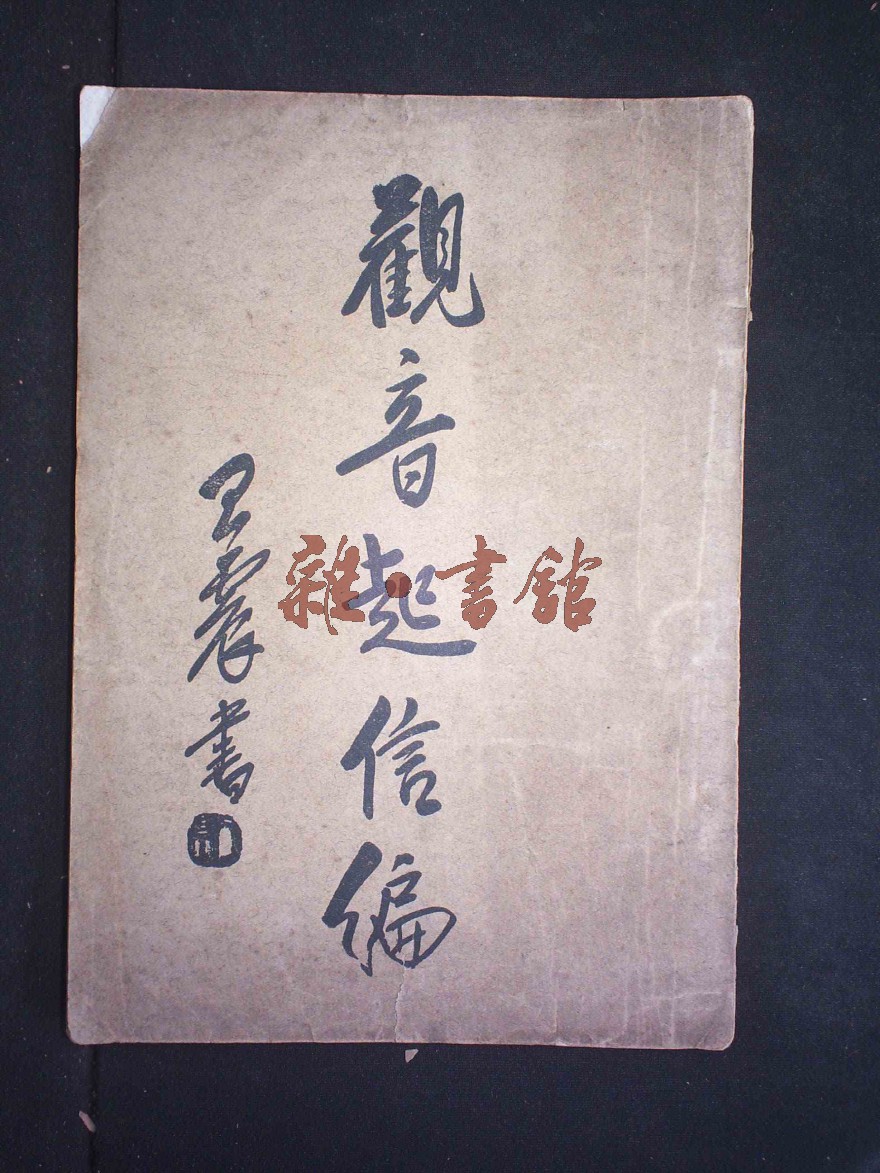 觀音起信編
王震書
雜·書館